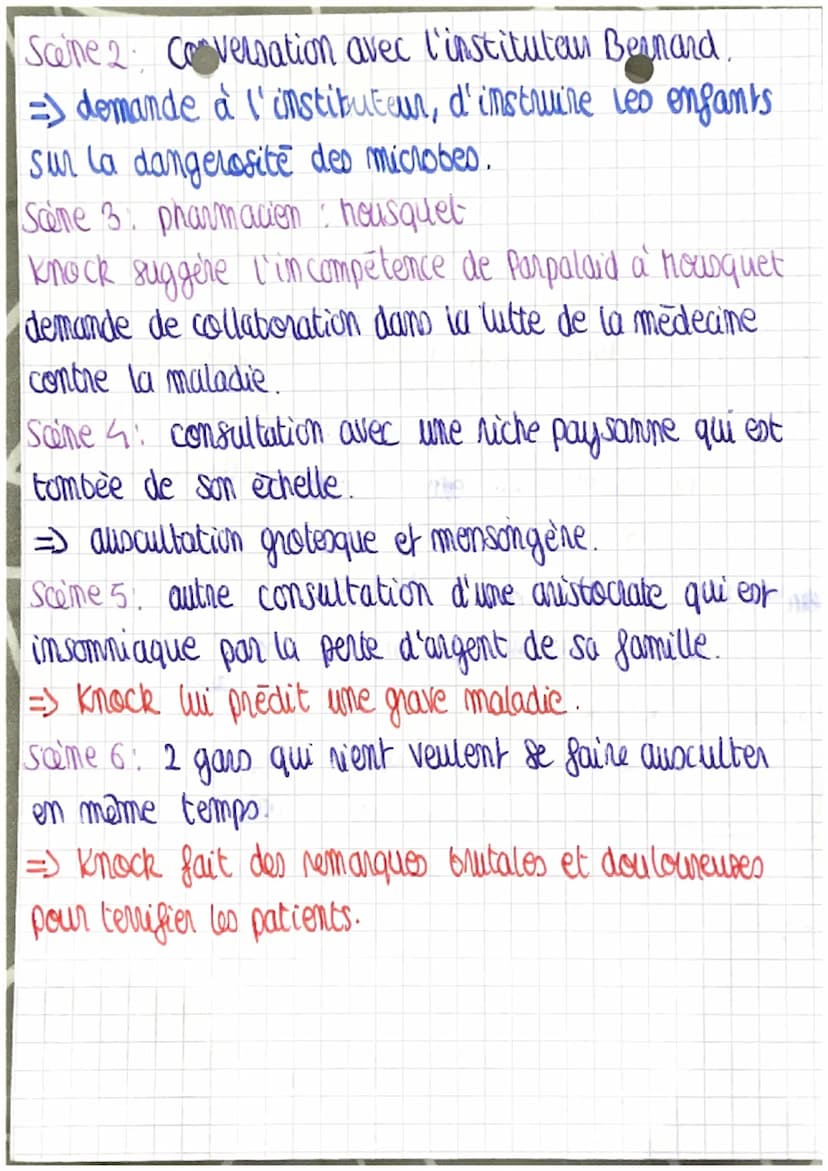 Scène 2: Conversation avec l'instituteur Bernard.
=> demande à l'instituteur, d'instruire les enfants
sur la dangerosité des microbes.
Scène 3: pharmacien : Mousquet
Knock suggère l'incompétence de Parpalaid à Mousquet
demande de collaboration dans la lutte de la médecine
contre la maladie.
Scène 4: consultation avec une riche paysanne qui est
tombée de son échelle.
=> auscultation grotesque et mensongère.
Scène 5: autre consultation d'une aristocrate qui est
insomniaque par la perte d'argent de sa famille.
=> Knock lui prédit une grave maladie.
Scène 6: 2 gars qui rient veulent se faire ausculter
en même temps.
=> Knock fait des remarques brutales et douloureuses
pour terrifier les patients.